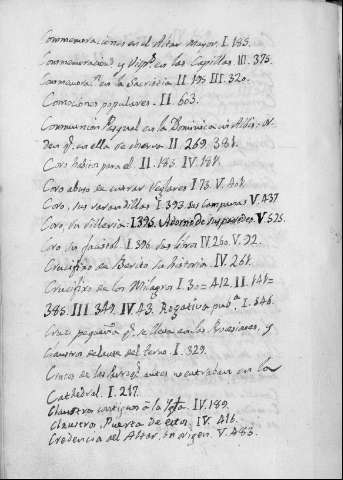 Commemoraciones en el Altar Mayor. I. 185.
Conmemoracion y Visp.s en las Capillas. III. 375.
Conmemora.n en la Sacristia II. 195 III. 320.
Comociones populares. II. 603.
Communion Pasqual en la Dominica in Albis. Or
den q.e en ella se observa II. 269. 381.
Coro habito para el. II. 185. IV. 181.
Coro abuso de entrar Seglares I 75. V. 401.
Coro, sus varandillas I. 393. sus campanas V. 437
Coro, la silleria. I. 395. Adorno de su paredes V. 525.
Coro su facistol I. 396. sus libros IV 260. V. 92.
Crucifixo de Berito su historia. IV. 261.
Crucifixo de los Milagros I. 30= 412. II. 141=
385. III 349. IV. 43. Rogativa pub.ca I. 346.
Cruz pequeña q.e se lleva en las Procesiones, y
Claustro de tarde del Jueves. I. 329.
antes no entraban en la
Cathedral. I. 217.
Claustros contiguos à la Ygl.a IV. 189.
Claustro, Puerta de estos. IV. 416.
Credencia del Altar, su origen. V. 483.